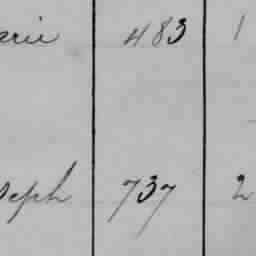 arie 483 1
oseph 737 2